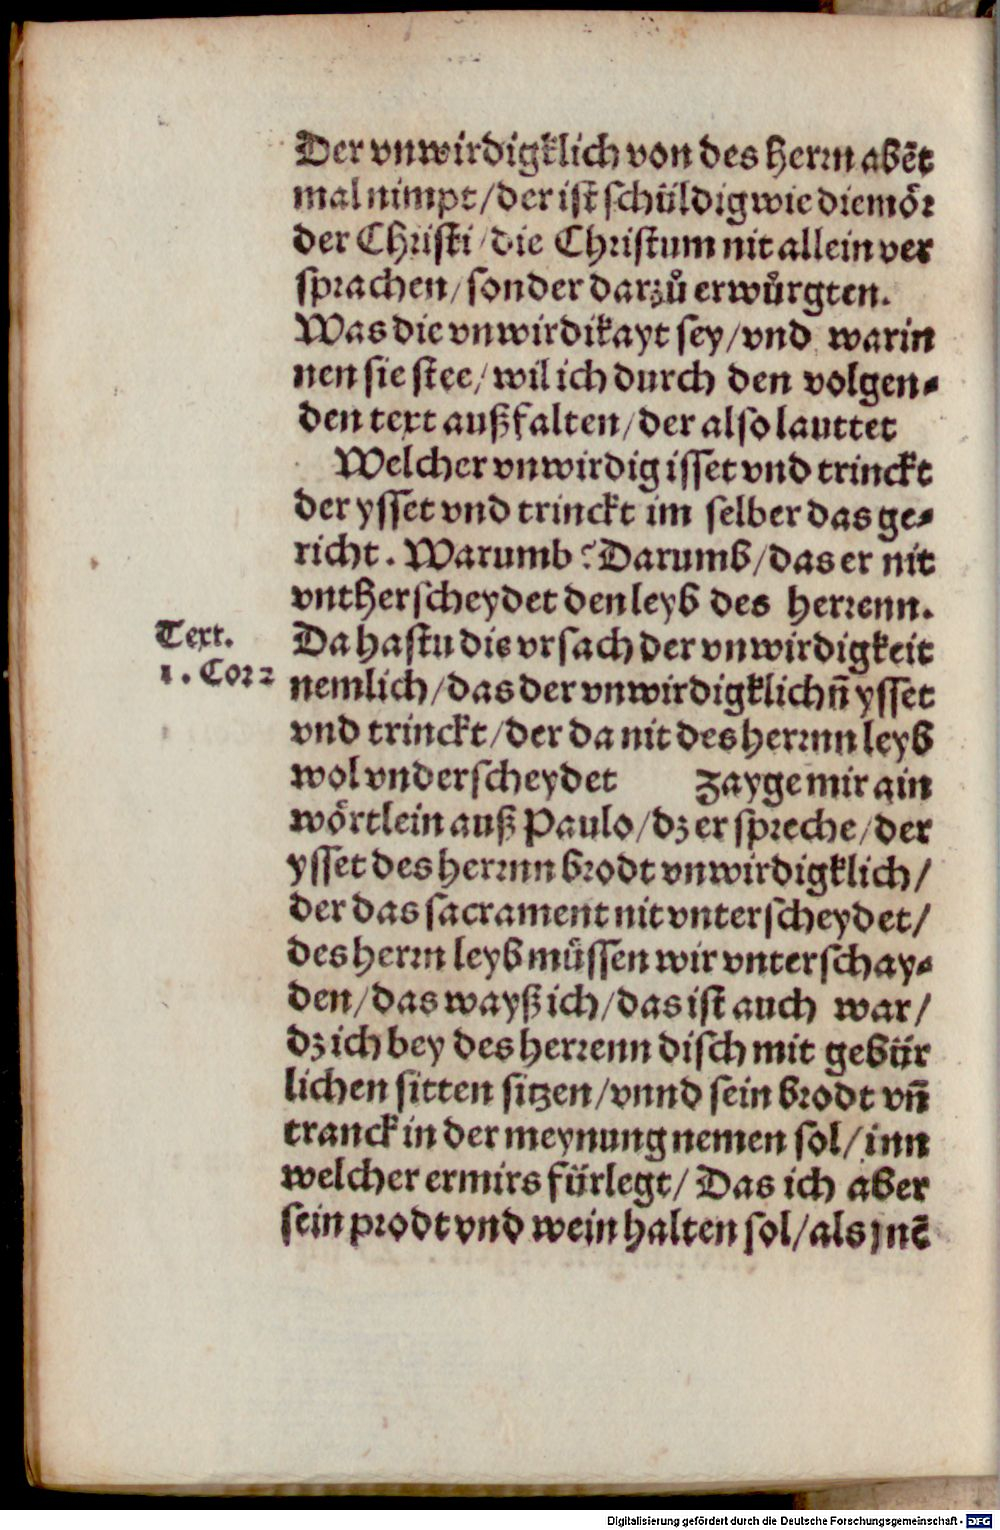 Der vnwirdigklich von des herrn abēt
mal nimpt/der ist schüldig wie die mör
der Christi/die Christum nit allein ver
sprachen/sonder darzů erwůrgten.
Was die vnwirdikayt sey/vnd warin
nen sie stee/wil ich durch den volgen-
den text außfalten/der also lauttet
Welcher vnwirdig isset vnd trinckt
der ysset vnd trinckt im selber das ge-
richt. Warumb? Darumb/das er nit
vntherscheydet den leyb des herrenn.
Text.
1. Cor 2
Da hastu die vrsach der vnwirdigkeit
nemlich/das der vnwirdigklichñ ysset
vnd trinckt/der da nit des herrnn leyb
wol vnderscheydet zayge mir ain
wörtlein auß Paulo/dz er spreche/der
ysset des herrnn brodt vnwirdigklich/
der das sacrament nit vnterscheydet/
des herrn leyb müssen wir vnterschay-
den/das wayß ich/das ist auch war/
dz ich bey des herrenn disch mit gebür
lichen sitten sitzen/vnnd sein brodt vñ
tranck in der meynung nemen sol/inn
welcher er mirs fürlegt/Das ich aber
sein prodt vnd wein halten sol/als jnē
Digitalisierung gefördert durch die Deutsche Forschungsgemeinschaft - DFG